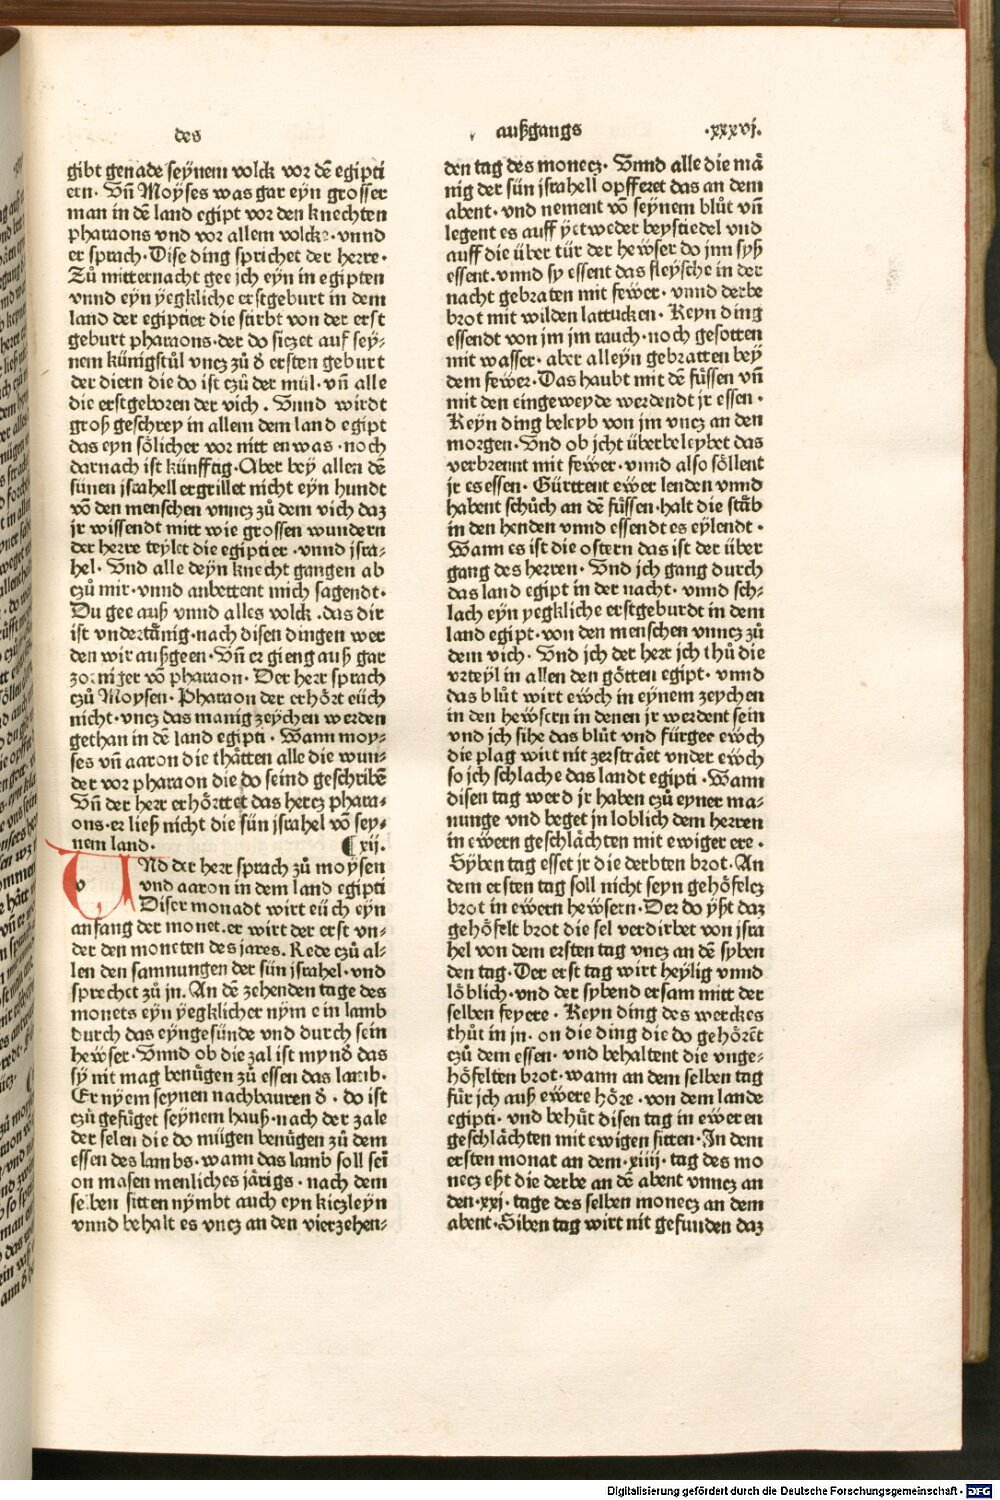 des
außgangs .xxxvj.
gibt genade seynem volck vor dē egipti
ern. Vn̄ Moyses was gar eyn grosser
man in dē land egipt vor den knechten
pharaons vnd vor allem volcke. vnnd
er sprach. Dise ding sprichet der herre.
Zů mitternacht gee ich eyn in egipten
vnnd eyn yegkliche erstgeburt in dem
land der egiptier die stirbt von der erst
geburt pharaons. der do siczet auf sey⸗
nem künigstůl vncz zů d̄ ersten geburt
der diern die do ist czů der mül. vn̄ alle
die erstgeboren der vich. Vnnd wirdt
groß geschrey in allem dem land egipt
das eyn sölicher vor nitt en was. noch
darnach ist künfftig. Aber bey allen dē
sünen jsrahell ergrillet nicht eyn hundt
vō den menschen vnncz zů dem vich daz
jr wissendt mitt wie grossen wundern
der herre teylet die egiptier. vnnd jsra⸗
hel. Vnd alle deyn knecht gangen ab
czů mir. vnnd anbettent mich sagendt.
Du gee auß vnnd alles volck. das dir
ist vndertånig. nach disen dingen wer
den wir außgeen. Vn̄ er gieng auß gar
zorniger vō pharaon. Der herr sprach
czů Moysen. Pharaon der erhört eüch
nicht. vncz das manig zeychen werden
gethan in dē land egipti. Wann moy⸗
ses vn̄ aaron die thåtten alle die wun⸗
der vor pharaon die do seind geschribē
Vn̄ der herr erhörttet das hercz phara⸗
ons. er ließ nicht die sün jsrahel vō sey⸗
nem land. ¶xij.
VNd der herr sprach zů moysen
vnd aaron in dem land egipti
Diser monadt wirt eüch eyn
anfang der monet. er wirt der erst vn⸗
der den moneten des jares. Rede czů al⸗
len den samnungen der sün jsrahel. vnd
sprechet zů jn. An dē zehenden tage des
monets eyn yegklicher nym ein lamb
durch das eyngesünde vnd durch sein
hewser. Vnnd ob die zal ist mynd̄ das
sy nit mag benügen zů essen das lamb.
Er nyem seynen nachbauren d̄. do ist
czů gefüget seynem hauß. nach der zale
der selen die do mügen benügen zů dem
essen des lambs. wann das lamb soll sei
on masen menliches järigs. nach dem
selben sitten nymbt auch eyn kiczleyn
vnnd behalt es vncz an den vierzehen⸗
den tag des monecz. Vnnd alle die må
nig der sün jsrahell opfferet das an dem
abent. vnd nement vō seynem blůt vn̄
legent es auff yetweder beystiedel vnd
auff die über tür der hewser do jnn syß
essent. vnnd sy essent das fleysche in der
nacht gebraten mit fewer. vnnd derbe
brot mit wilden lattucken. Keyn ding
essendt von im im rauch. noch gesotten
mit wasser. aber alleyn gebratten bey
dem fewer. Das haubt mit dē füssen vn̄
mit den eingeweyde werdendt jr essen.
Keyn ding beleyb von jm vncz an den
morgen. Vnd ob jcht überbeleybet das
verbrennt mit fewer. vnnd also söllent
jr es essen. Gürttent ewer lenden vnnd
habent schůch an dē füssen. halt die ståb
in den henden vnnd essendt es eylendt.
Wann es ist die ostern das ist der über
gang des herren. Vnd jch gang durch
das land egipt in der nacht. vnnd sch⸗
lach eyn yegkliche erstgeburdt in dem
land egipt. von den menschen vnncz zů
dem vich. Vnd jch der herr jch thů die
vrteyl in allen den götten egipt. vnnd
das blůt wirt ewch in eynem zeychen
in den hewsern in denen jr werdent sein
vnd jch sihe das blůt vnd fürgee ewch
die plag wirt nit zerstrået vnder ewch
so jch schlache das landt egipti. Wann
disen tag werd jr haben czů eyner ma⸗
nunge vnd beget jn loblich dem herren
in ewern geschlächten mit ewiger ere.
Syben tag esset jr die derbten brot. An
dem ersten tag soll nicht seyn gehöfelcz
brot in ewern hewsern. Der do yßt daz
gehöfelt brot die sel verdirbet von jsra
hel von dem ersten tag vncz an dē syben
den tag. Der erst tag wirt heylig vnnd
löblich. vnd der sybend ersam mitt der
selben feyere. Keyn ding des werckes
thůt in jn. on die ding die do gehörēt
czů dem essen. vnd behaltent die vnge⸗
höfelten brot. wann an dem selben tag
für jch auß ewere höre. von dem lande
egipti. vnd behüt disen tag in eweren
geschlächten mit ewigen sitten. In dem
ersten monat an dem. xiiij. tag des mo
necz eßt die derbe an dē abent vnncz an
den. xxj. tage des selben monecz an dem
abent. Siben tag wirt nit gefunden daz
Digitalisierung gefördert durch die Deutsche Forschungsgemeinschaft - DFG